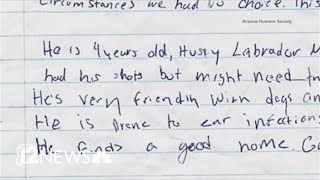 Arizona Humane Society.
circumstances we had no choice. This
He is 4 years old, Husky Labrador M
had his shots but might need th
He's very friendly with dogs an
He is prone to ear infections
He finds a good home.
12 NEWS